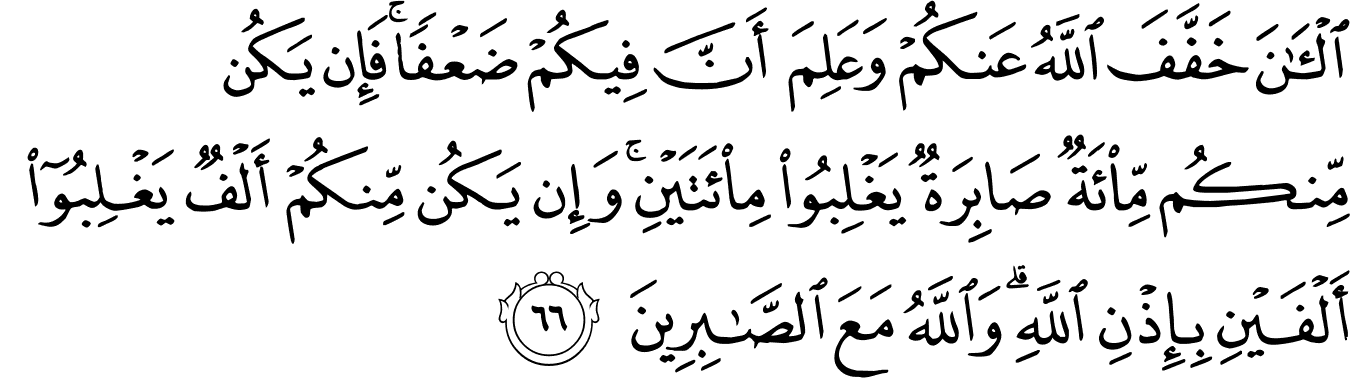 ٱلْـَٰٔنَ خَفَّفَ ٱللَّهُ عَنكُمْ وَعَلِمَ أَنَّ فِيكُمْ ضَعْفًا ۚ فَإِن يَكُن
مِّنكُم مِّا۟ئَةٌ صَابِرَةٌ يَغْلِبُوا۟ مِا۟ئَتَيْنِ ۚ وَإِن يَكُن مِّنكُمْ أَلْفٌ يَغْلِبُوٓا۟
أَلْفَيْنِ بِإِذْنِ ٱللَّهِ ۗ وَٱللَّهُ مَعَ ٱلصَّـٰبِرِينَ ٦٦